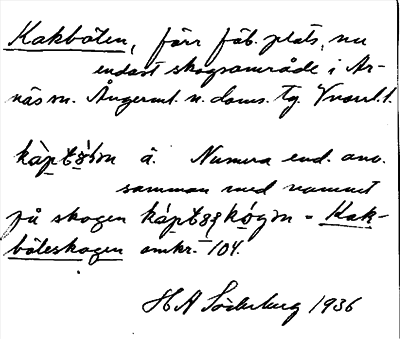 Kakböten, förr fäb. plats, nu
endast skogsområde i Ar-
näs sn. Ångerml. n. doms. tg.
kàptö̀tn̥ ä. Numera end. anv.
samman med namnet
på skogen kápt kógn = Kak-
böteskogen omkr. 104.
H A Söderberg 1936